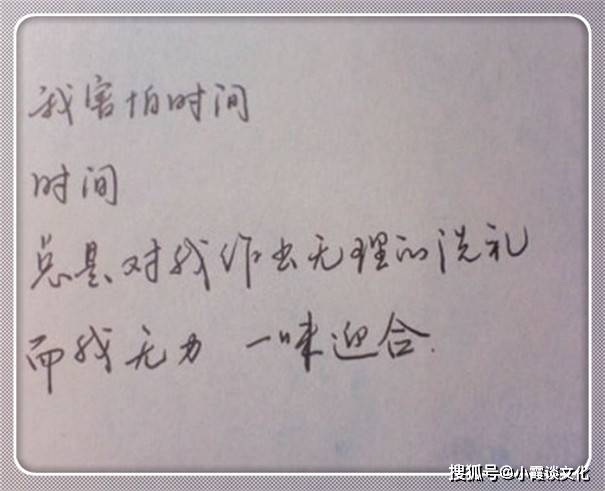 我害怕时间
时间
总是对我作出无理的洗礼
而我无力 一味迎合.
搜狐号@小霞谈文化